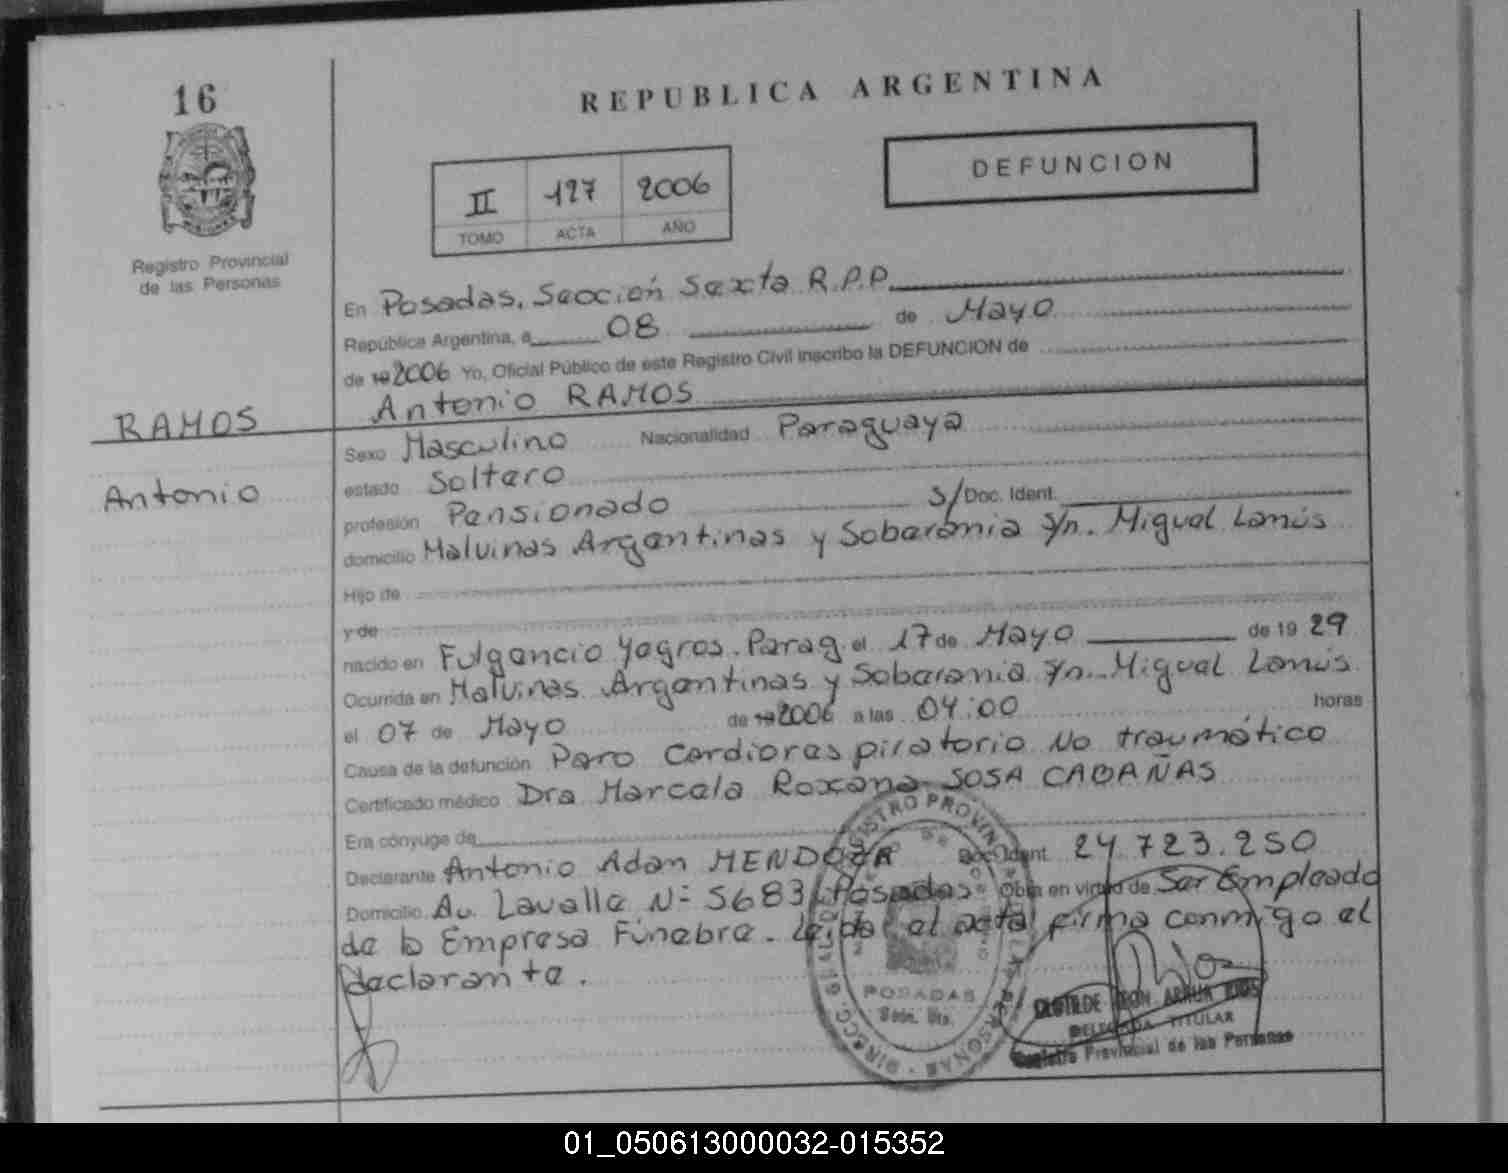 16
REPUBLICA ARGENTINA
DEFUNCION
II 127 2006
TOMO ACTA AÑO
Registro Provincial
de las Personas
En Posadas, Sección Sexta R.P.P.
República Argentina, a 08 de Mayo
de 19 2006 Yo, Oficial Público de este Registro Civil inscribo la DEFUNCION de
Antonio RAMOS
RAMOS
Antonio
Sexo Masculino Nacionalidad Paraguaya
estado Soltero
profesión Pensionado S/Doc. Ident.
domicilio Malvinas Argentinas y Soberania s/n. Miguel Lanús
Hijo de
y de
nacido en Fulgencio Yegros. Parag. el 17 de Mayo de 19 29
Ocurrida en Malvinas Argentinas y Soberania s/n. Miguel Lanús
el 07 de Mayo de 19 2006 a las 04:00 horas
Causa de la defunción Paro Cardiorespiratorio No traumático
Certificado médico Dra Marcela Roxana SOSA CABAÑAS
Era cónyuge de
Declarante Antonio Adan MENDOZA Doc. Ident. 24.723.250
Domicilio Av. Lavalle Nº 5683 Posadas Obra en virtud de Ser Empleado
de la Empresa Fúnebre. Leída el acta firma conmigo el
declarante.
POSADAS
Sección 6ta.
CLOTILDE
DELEGADA TITULAR
Registro Provincial de las Personas
01_050613000032-015352